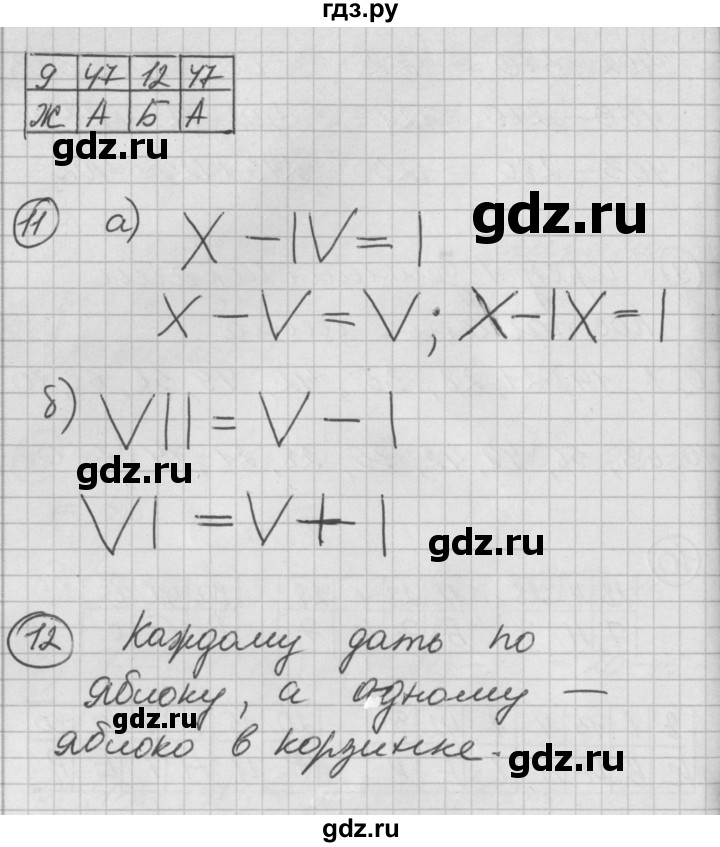 гдз.ру
9 47 12 47
Ж А Б А
gdz.ru
gdz.ru
11 а) X – IV = I
X – V = V; X – IX = I
б) VII = V – I
gdz.ru
VI = V + I
gdz.ru
12 Каждому дать по
яблоку, а одному –
gdz.ru
яблоко в корзинке.
gdz.ru
gdz.ru